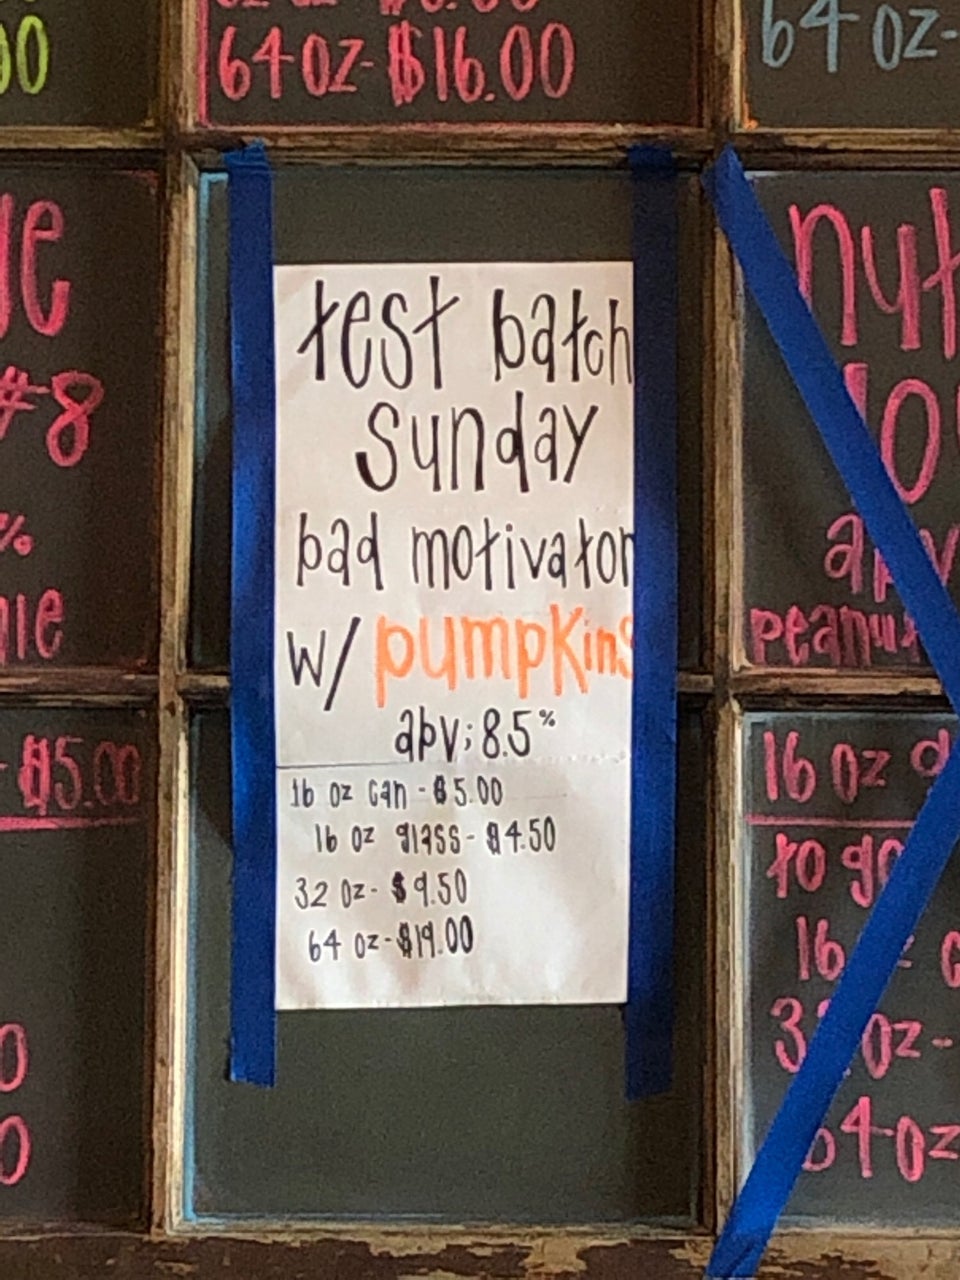 64 oz- $16.00
64 oz-
#8
%
$5.00
test batch
Sunday
bad motivator
w/ pumpkins
abv; 8.5%
16 oz can - $5.00
16 oz glass - $4.50
32 oz - $9.50
64 oz - $19.00
nut
peanut
16 oz
to go
16
oz-
64 oz